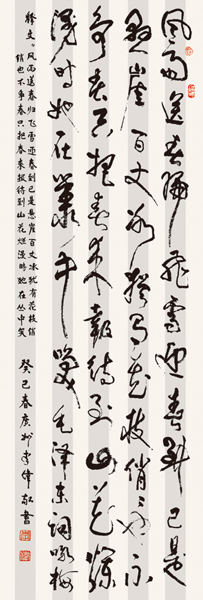 风雨送春归飞雪迎春到已是
悬崖百丈冰犹有花枝俏俏也不
争春只把春来报待到山花烂
漫时她在丛中笑 毛泽东词咏梅
释文：风雨送春归飞雪迎春到已是悬崖百丈冰犹有花枝俏
俏也不争春只把春来报待到山花烂漫时她在丛中笑
癸巳春广州李伟 书